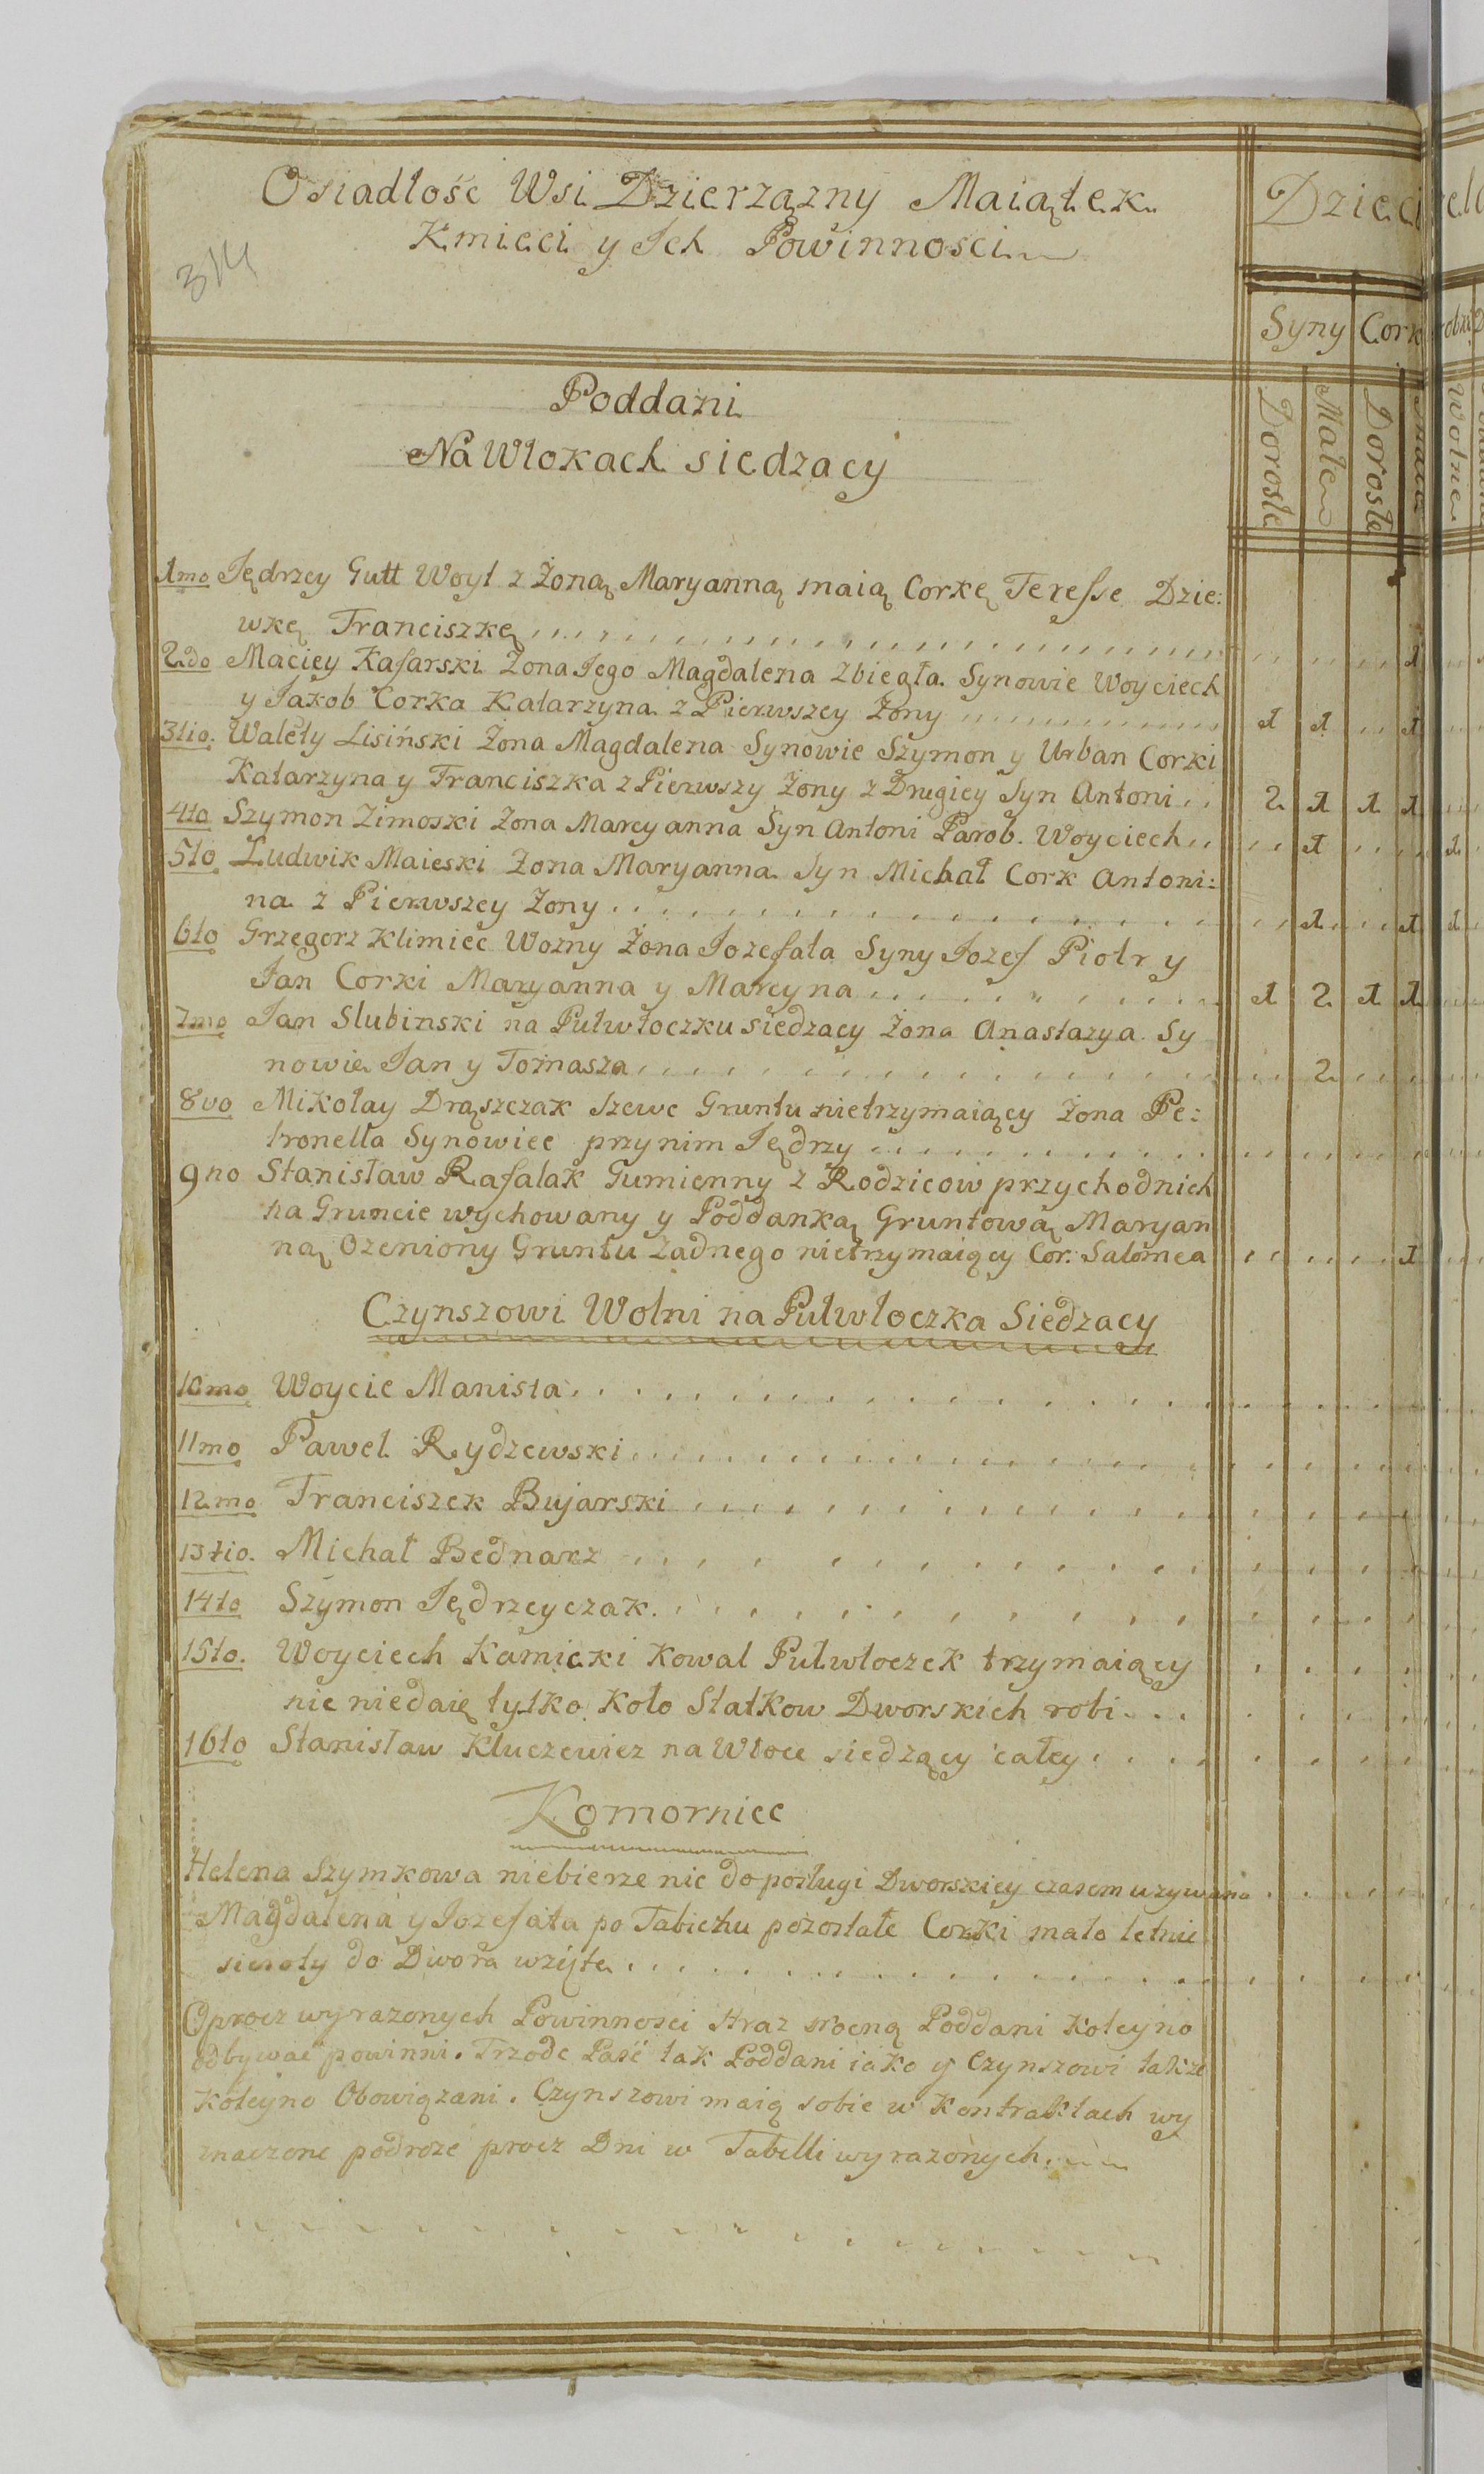 Osiadłość Wsi Dzierzązny Maiątek
Kmieci y Ich Powinnosci
314
Dzieci
Syny
Cork
Dorosłe
Małe
Dorosłe
Wolne
Poddani
Na Włokach siedzacy
1mo Jędrzey Gutt Woyt z Żoną Maryanną maią Corkę Teresse Dzie:
wkę Franciszkę 1
2do Maciey Kafarski Żona Jego Magdalena Zbiegła Synowie Woyciech
y Jakob Corka Katarzyna z Pierwszey Żony 1 1 1
3tio. Walęty Lisiński Żona Magdalena Synowie Szymon y Urban Corki
Katarzyna y Franciszka z Pierwszy Żony z Drugiey Syn Antoni 2 1 1 1
4to Szymon Zimoski Żona Maryanna Syn Antoni Parob. Woyciech 1 1
5to Ludwik Maieski Żona Maryanna Syn Michał Cork Antoni:
na z Pierwszey Żony 1 1 1
6to Grzegorz Klimiec Wozny Żona Jozefata Syny Jozef Piotr y
Jan Corki Maryanna y Marcyna 1 2 1 1
7mo Jan Slubinski na Pułwłoczku siedzacy Żona Anastazya Sy
nowie Jan y Tomasza 2
8vo Mikołay Drąszczak Szewc Gruntu nietrzymaiący Żona Pe:
tronella Synowiec przy nim Jędrzy
9no Stanisław Rafalak Gumienny z Rodzicow przychodnich
na Gruncie wychowany y Poddanką Gruntową Maryan
ną Ozeniony Gruntu żadnego nietrzymaiący Cor. Salomea 1
Czynszowi Wolni na Pułwłoczka Siedzacy
10mo Woycic Manista
11mo Paweł Rydzewski
12mo Franciszek Bujarski
13tio. Michał Bednarz
14to Szymon Jędrzeyczak
15to. Woyciech Kamicki Kowal Pułwłoczek trzymaiący
nic niedaię tylko koło Statkow Dworskich robi
16to Stanisław Kluczewicz na Włoce siedzący całey
Komornice
Helena Szymkowa niebierze nic do posługi Dworskiey czasem uzywana
Magdalena y Jozefata po Tabichu pozostałe Corki mało letnie
sieroty do Dwora wzięte
Oprocz wyrazonych Powinnosci straz nocną Poddani koleyno
odbywać powinni. Trzode Paść tak Poddani iako y Czynszowi takze
koleyno Obowiązani. Czynszowi maią sobie w Kontraktach wy
znaczone podroze procz Dni w Tabelli wyrazonych